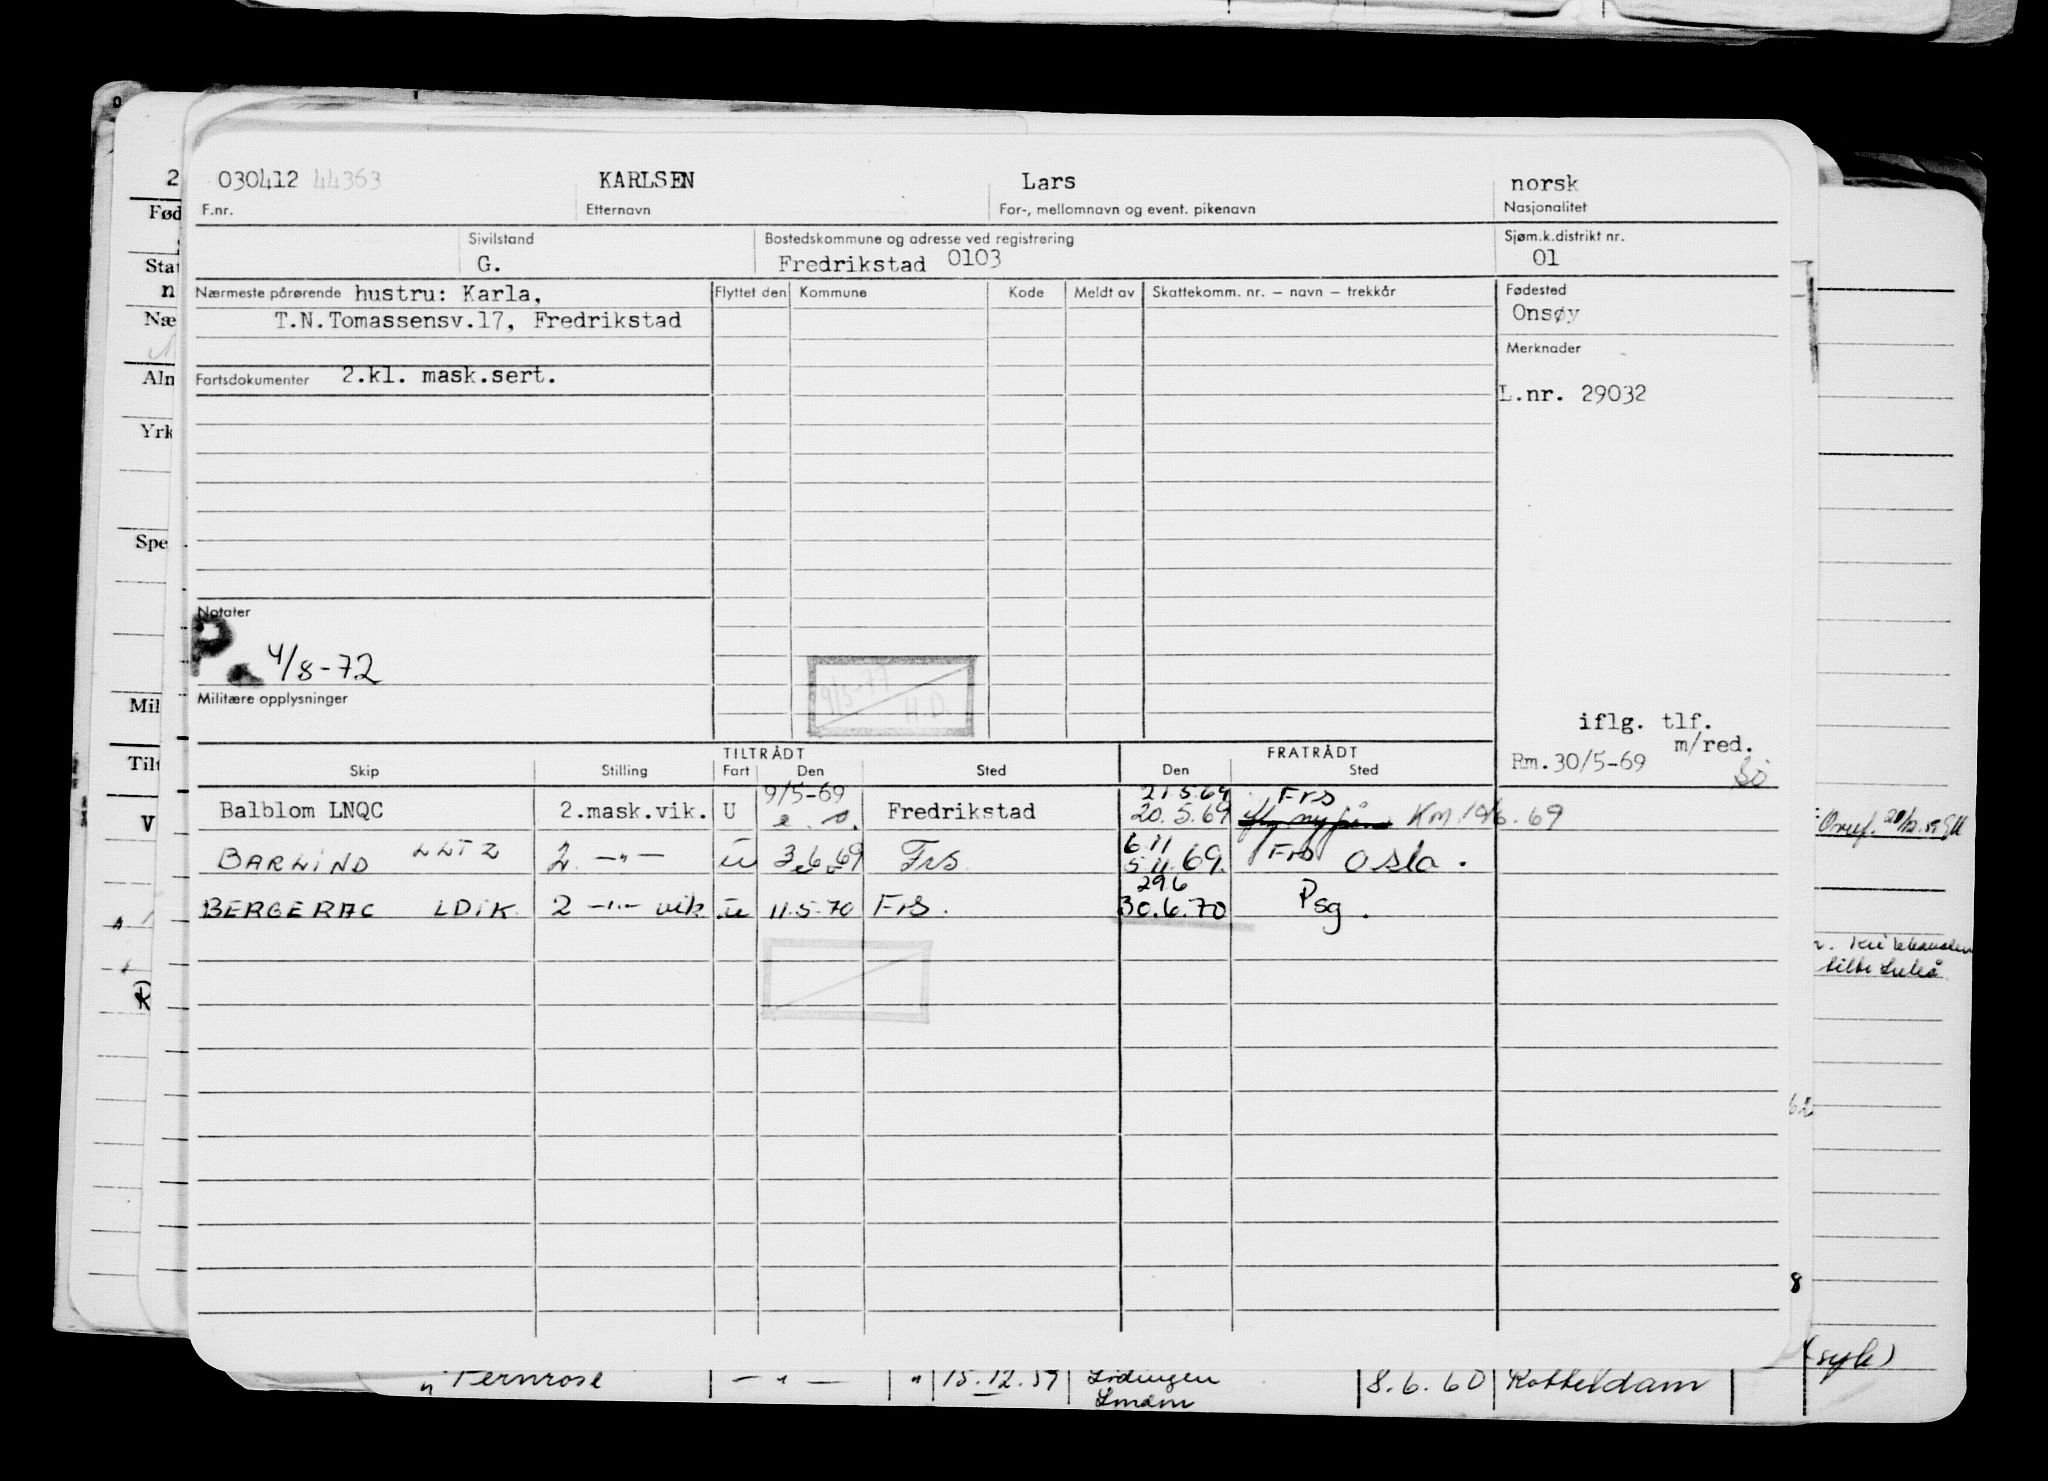 030412 44363 KARLSEN Lars norsk
F.nr. Etternavn For-, mellomnavn og event. pikenavn Nasjonalitet
Sivilstand Bostedskommune og adresse ved registrering Sjøm.k.distrikt nr.
G. Fredrikstad 0103 01
Nærmeste pårørende hustru: Karla, Flyttet den Kommune Kode Meldt av Skattekomm. nr. – navn – trekkår Fødested
T.N.Tomassensv.17, Fredrikstad Onsøy
Merknader
Fartsdokumenter 2.kl. mask.sert.
L.nr. 29032
Notater
P
4/8-72
9/5-77
H.D.
Militære opplysninger
iflg. tlf.
m/red.
Rm.30/5-69
TILTRÅDT FRATRÅDT
Skip Stilling Fart Den Sted Den Sted
9/5-69 21.5.69 Frs
Balblom LNQC 2.mask.vik. U Fredrikstad 20.5.69
6.11 Frs
BARLIND LLTZ 2. —"— U 3.6.69 Frs 5.11.69. Oslo.
29.6
BERGERAC LDIK 2 —"— vik U 11.5.70 Frs. 30.6.70 Psg.
Fød
Stat
Næ
Aln
Yrk
Spe
Mil
Tilt
V
62
8
(syk)
" Fernrose — " — " 15.12.59 Lödingen 8.6.60 Rotterdam
London